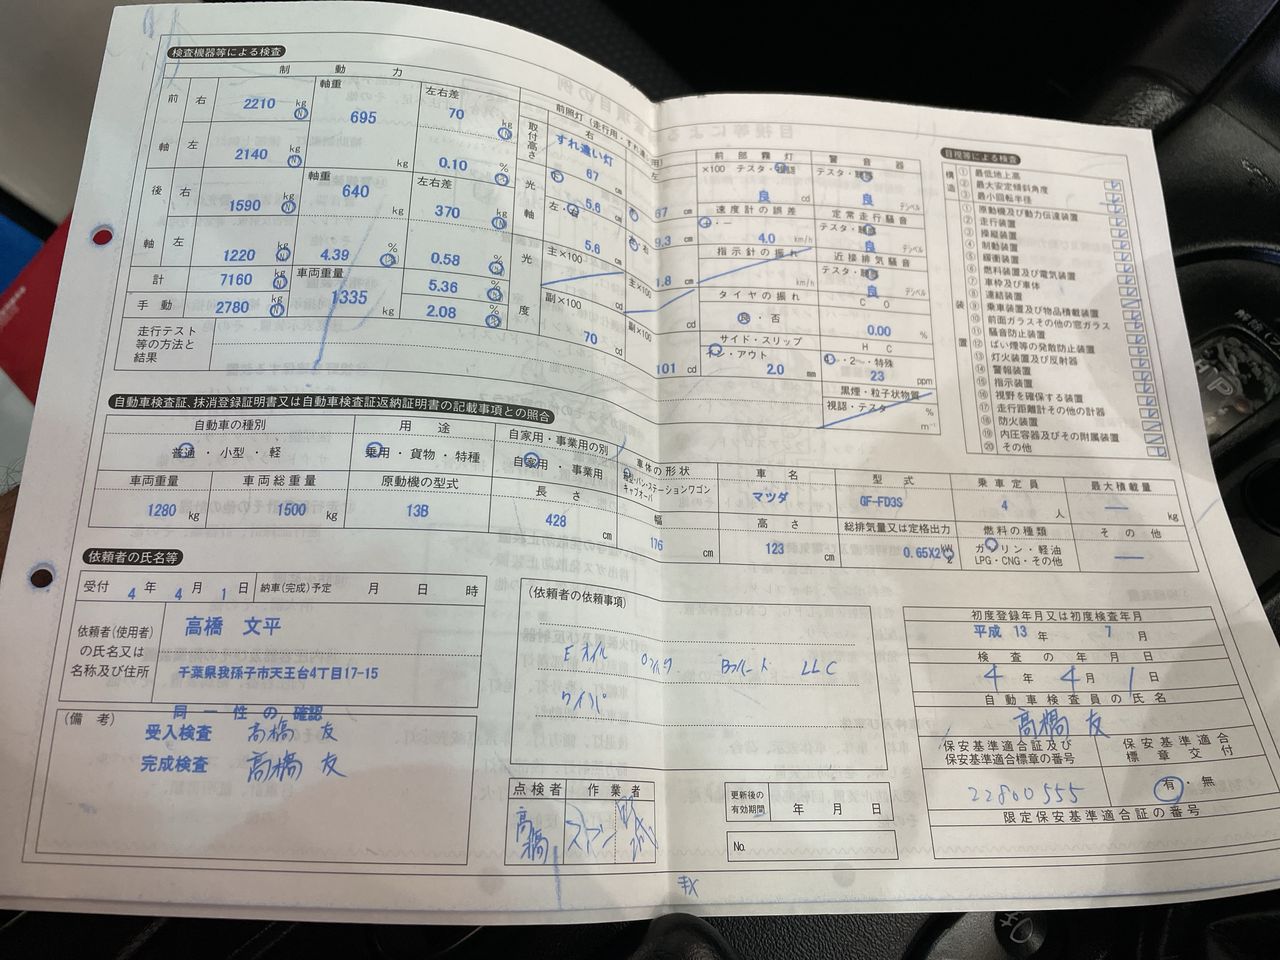 検査機器等による検査
制動力
前軸 右 2210 kg N 軸重 695 kg 左右差 70 kg N
左 2140 kg N 0.10 % N
後軸 右 1590 kg N 軸重 640 kg 左右差 370 kg N
左 1220 kg N 4.39 % N 0.58 % N
計 7160 kg N 車両重量 1335 5.36 % N
手動 2780 kg N 2.08 % N
走行テスト等の方法と結果
前照灯(走行用・すれ違い用)
右 左
すれ違い灯
取付高さ 67 cm 67 cm
光軸 5.6 9.3 cm
左・右 5.6
光度 主×100 主×100 1.8
副×100 cd 副×100
70 cd 101 cd
前部霧灯
×100 テスタ・視認
良 cd
速度計の誤差
+・−
4.0 km/h
指示針の振れ
km/h
タイヤの振れ
良・否
サイド・スリップ
イン・アウト
2.0 mm
警音器
テスタ・聴感
良 デシベル
定常走行騒音
テスタ・聴感
良 デシベル
近接排気騒音
テスタ・聴感
良 デシベル
CO
0.00 %
HC
4・2・特殊
23 ppm
黒煙・粒子状物質
視認・テスタ %
m⁻¹
目視等による検査
構造
① 最低地上高
② 最大安定傾斜角度
③ 最小回転半径
装置
① 原動機及び動力伝達装置
② 走行装置
③ 操縦装置
④ 制動装置
⑤ 緩衝装置
⑥ 燃料装置及び電気装置
⑦ 車枠及び車体
⑧ 連結装置
⑨ 乗車装置及び物品積載装置
⑩ 前面ガラスその他の窓ガラス
⑪ 騒音防止装置
⑫ ばい煙等の発散防止装置
⑬ 灯火装置及び反射器
⑭ 警報装置
⑮ 指示装置
⑯ 視野を確保する装置
⑰ 走行距離計その他の計器
⑱ 防火装置
⑲ 内圧容器及びその附属装置
⑳ その他
自動車検査証、抹消登録証明書又は自動車検査証返納証明書の記載事項との照合
自動車の種別 用途 自家用・事業用の別 車体の形状 車名 型式 乗車定員 最大積載量
普通・小型・軽 乗用・貨物・特種 自家用・事業用 箱型・バン・ステーションワゴン キャブオーバ マツダ GF-FD3S 4 人 — kg
車両重量 車両総重量 原動機の型式 長さ 幅 高さ 総排気量又は定格出力 燃料の種類 その他
1280 kg 1500 kg 13B 428 cm 176 cm 123 cm 0.65X2 kW ℓ ガソリン・軽油 LPG・CNG・その他 —
依頼者の氏名等
受付 4年 4月 1日 納車(完成)予定 月 日 時
依頼者(使用者)の氏名又は名称及び住所
高橋 文平
千葉県我孫子市天王台4丁目17-15
(備考)
同一性の確認
受入検査 高橋 友
完成検査 高橋 友
(依頼者の依頼事項)
Eオイル Bフルード LLC
ワイパ
点検者 作業者
高橋
更新後の有効期間 年 月 日
No.
初度登録年月又は初度検査年月
平成 13年 7月
検査の年月日
4年 4月 1日
自動車検査員の氏名
高橋 友
保安基準適合証及び保安基準適合標章の番号
22800555
保安基準適合標章交付
有・無
限定保安基準適合証の番号